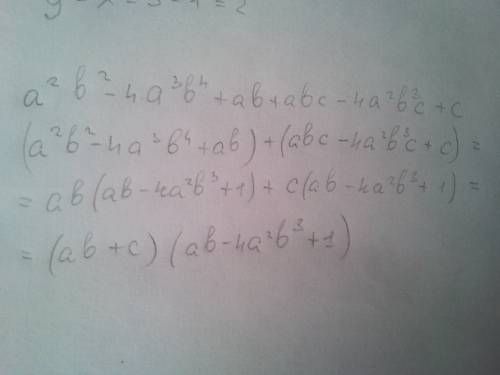 y - x = 3 - 1 = 2
a²b² - 4a³b⁴ + ab + abc - 4a²b³c + c
(a²b² - 4a³b⁴ + ab) + (abc - 4a²b³c + c) =
= ab(ab - 4a²b³ + 1) + c(ab - 4a²b³ + 1) =
= (ab + c)(ab - 4a²b³ + 1)